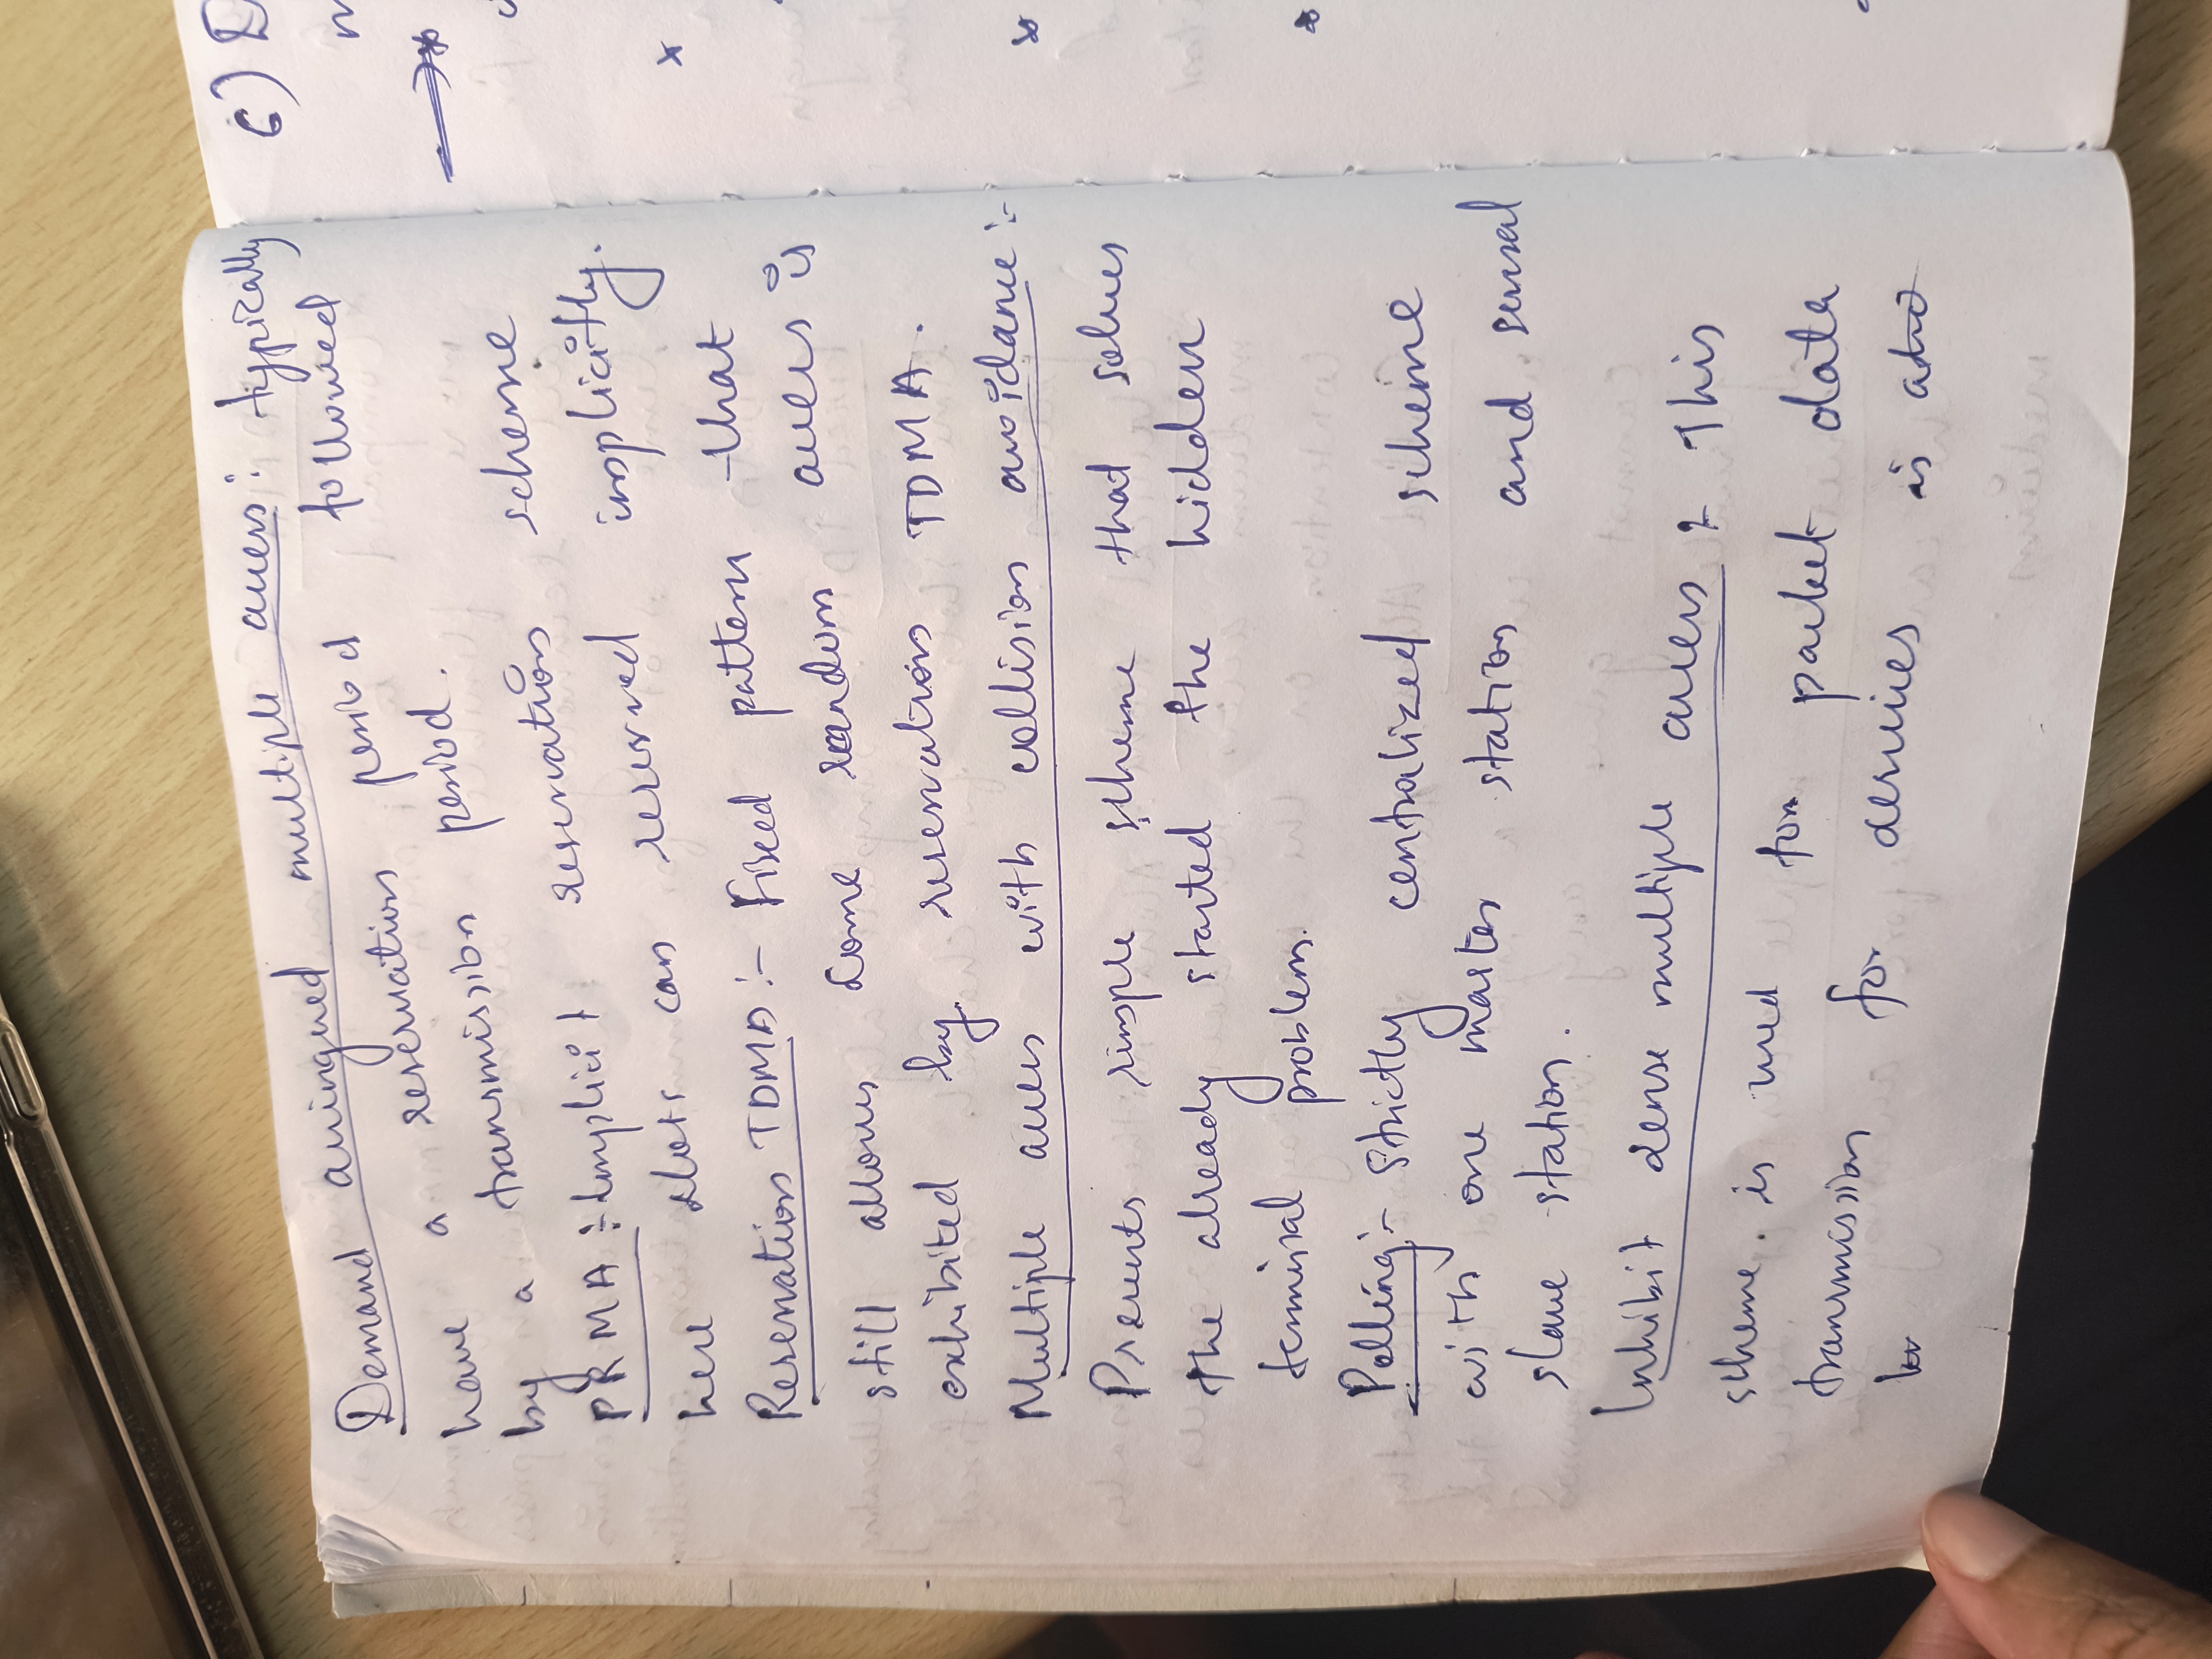 Demand assingned multiple access : typically
have a reservation period followed
by a transmission period.
PRMA :- Implicit reservation scheme
here slots can reserved implicitly.
Reservation TDMA :- Fixed pattern that
still allows some random access is
exhibited by reservation TDMA.
Multiple access with collision avoidance :-
Presents simple scheme that solves
the already started the hidden
terminal problem.
Polling :- Strictly centralized scheme
with one master station and several
slave station.
Inhibit sense multiple access : This
scheme. is used for packet data
transmission for services is also
6) D